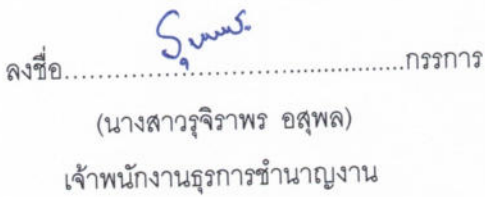 ลงชื่อ.......................................................กรรการ
(นางสาวรุจิราพร อสุพล)
เจ้าพนักงานธุรการชำนาญงาน